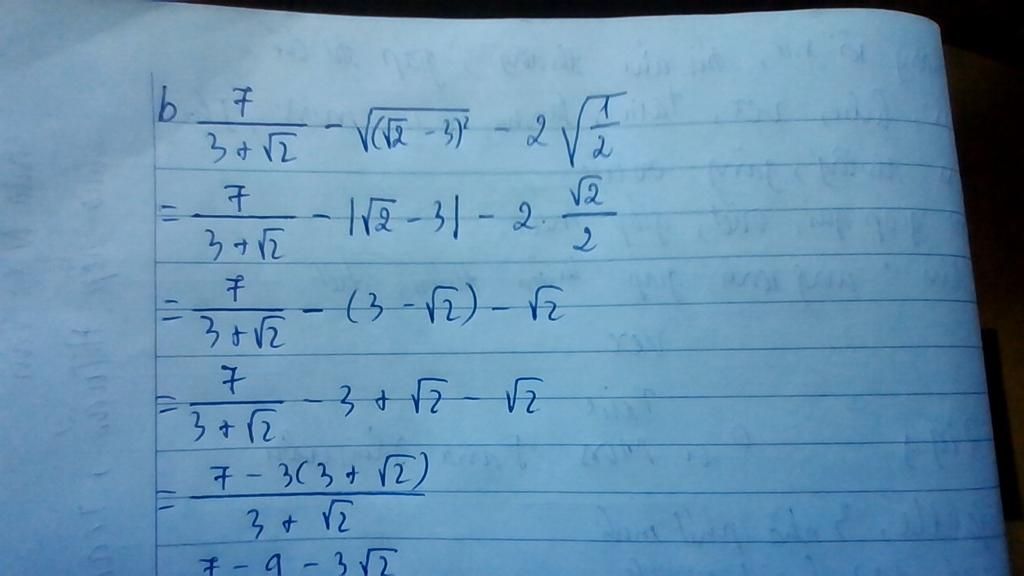 b 7/(3+√2) - √((√2 - 3)²) - 2√(1/2)
= 7/(3+√2) - |√2 - 3| - 2. √2/2
= 7/(3+√2) - (3 - √2) - √2
= 7/(3+√2) - 3 + √2 - √2
= (7 - 3(3 + √2))/(3 + √2)
7 - 9 - 3√2